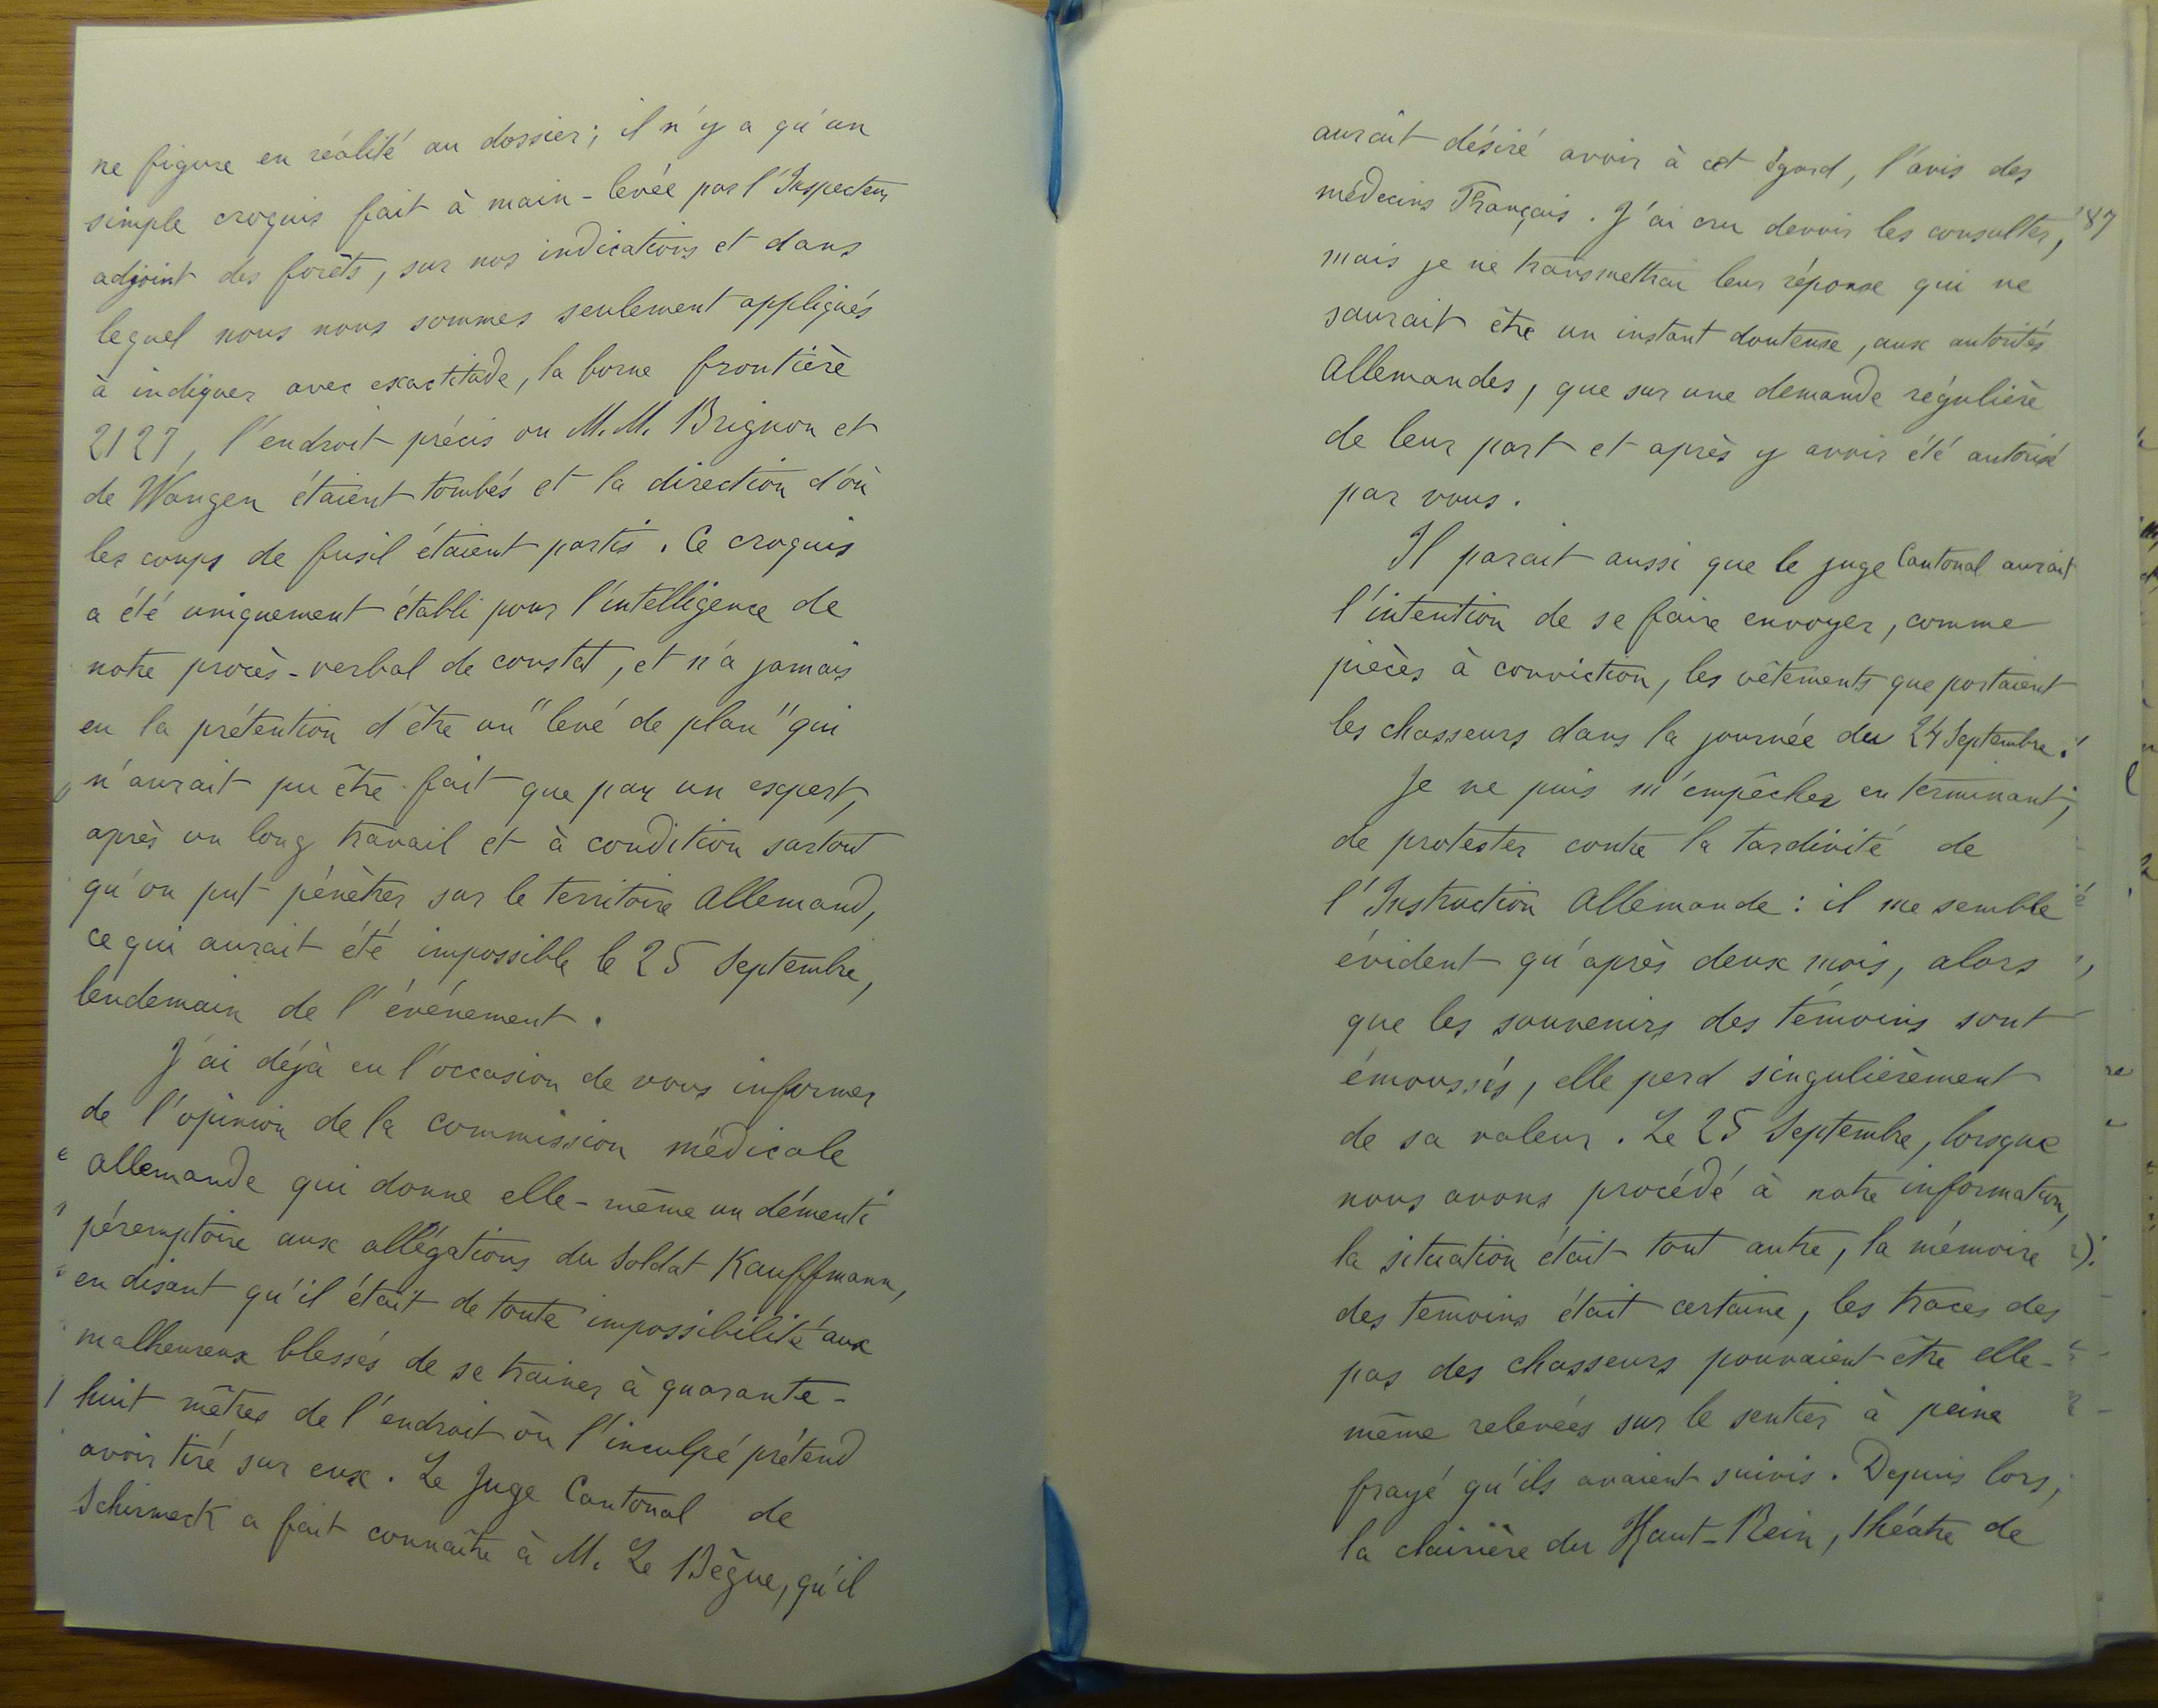 ne figure en réalité au dossier; il n'y a qu'un
simple croquis fait à main-levée par l'Inspecteur
adjoint des forêts, sur nos indications et dans
lequel nous nous sommes seulement appliqués
à indiquer avec exactitude, la borne frontière
2127, l'endroit précis ou M.M. Brignon et
de Wangen étaient tombés et la direction d'où
les coups de fusil étaient partis. Ce croquis
a été uniquement établi pour l'intelligence de
notre procès-verbal de constat, et n'a jamais
eu la prétention d'être un "levé de plan" qui
n'aurait pu être fait que par un expert,
après un long travail et à condition surtout
qu'on put pénètrer sur le territoire Allemand,
ce qui aurait été impossible le 25 Septembre,
lendemain de l'événement.
J'ai déjà eu l'occasion de vous informer
de l'opinion de la commission médicale
allemande qui donne elle-même un démenti
péremptoire aux allégations du soldat Kauffmann,
en disant qu'il était de toute impossibilité aux
malheureux blessés de se trainer à quarante-
huit mêtres de l'endroit où l'inculpé prétend
avoir tiré sur eux. Le Juge Cantonal de
Schirmeck a fait connaître à M. Le Bègue, qu'il
aurait désiré avoir à cet égard, l'avis des
médecins Français. J'ai cru devoir les consulter,
187
mais je ne transmettrai leur réponse qui ne
saurait être un instant douteuse, aux autorités
Allemandes, que sur une demande régulière
de leur part et après y avoir été autorisé
par vous.
Il parait aussi que le juge Cantonal aurait
l'intention de se faire envoyer, comme
pièces à conviction, les vêtements que portaient
les chasseurs dans la journée du 24 Septembre.
Je ne puis m'empêcher en terminant,
de protester contre la tardivité de
l'Instruction Allemande: il me semble
évident qu'après deux mois, alors
que les souvenirs des témoins sont
émoussés, elle perd singulièrement
de sa valeur. Le 25 Septembre, lorsque
nous avons procédé à notre information,
la situation était tout autre, la mémoire
des temoins était certaine, les traces des
pas des chasseurs pouvaient être elle-
même relevées sur le sentier à peine
frayé qu'ils avaient suivis. Depuis lors,
la clairière du Haut-Rein, théatre de